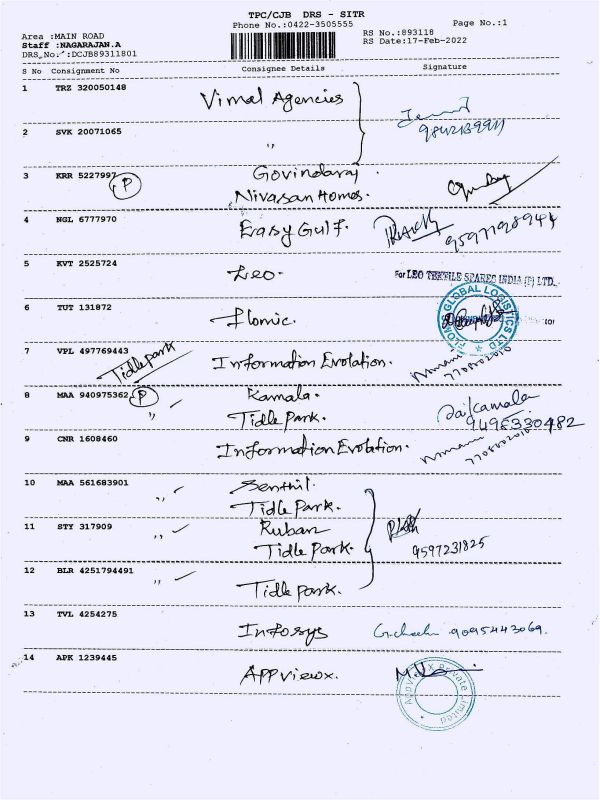 TPC/CJB DRS - SITR
Phone No.:0422-3505555
Page No.:1
Area :MAIN ROAD
RS No.:893118
Staff :NAGARAJAN.A
RS Date:17-Feb-2022
DRS No. :DCJB89311801
S No Consignment No Consignee Details Signature
1 TRZ 320050148 Vimal Agencies
9842139911
2 SVK 20071065 "
3 KRR 5227997 P Govindaraj
Nivasan Homes.
4 NGL 6777970 Easy Gulf.
5 KVT 2525724 Leo.
For LEO TEXTILE SPARES INDIA (P) LTD.,
6 TUT 131872 Flomic.
FLOMIC GLOBAL LOGISTICS LTD
7 VPL 497769443 Tidle park Information Evolation.
8 MAA 940975362 P Kamala.
" Tidle Park.
Jaikamala
9495330482
9 CNR 1608460 Information Evolation.
10 MAA 561683901 Senthil.
" Tidle Park.
11 STY 317909 Ruban
" Tidle Park.
9597231825
12 BLR 4251794491
" Tidle park.
13 TVL 4254275 Infosys
9095443069.
14 APK 1239445 APPviewx.
AppviewX Private Limited